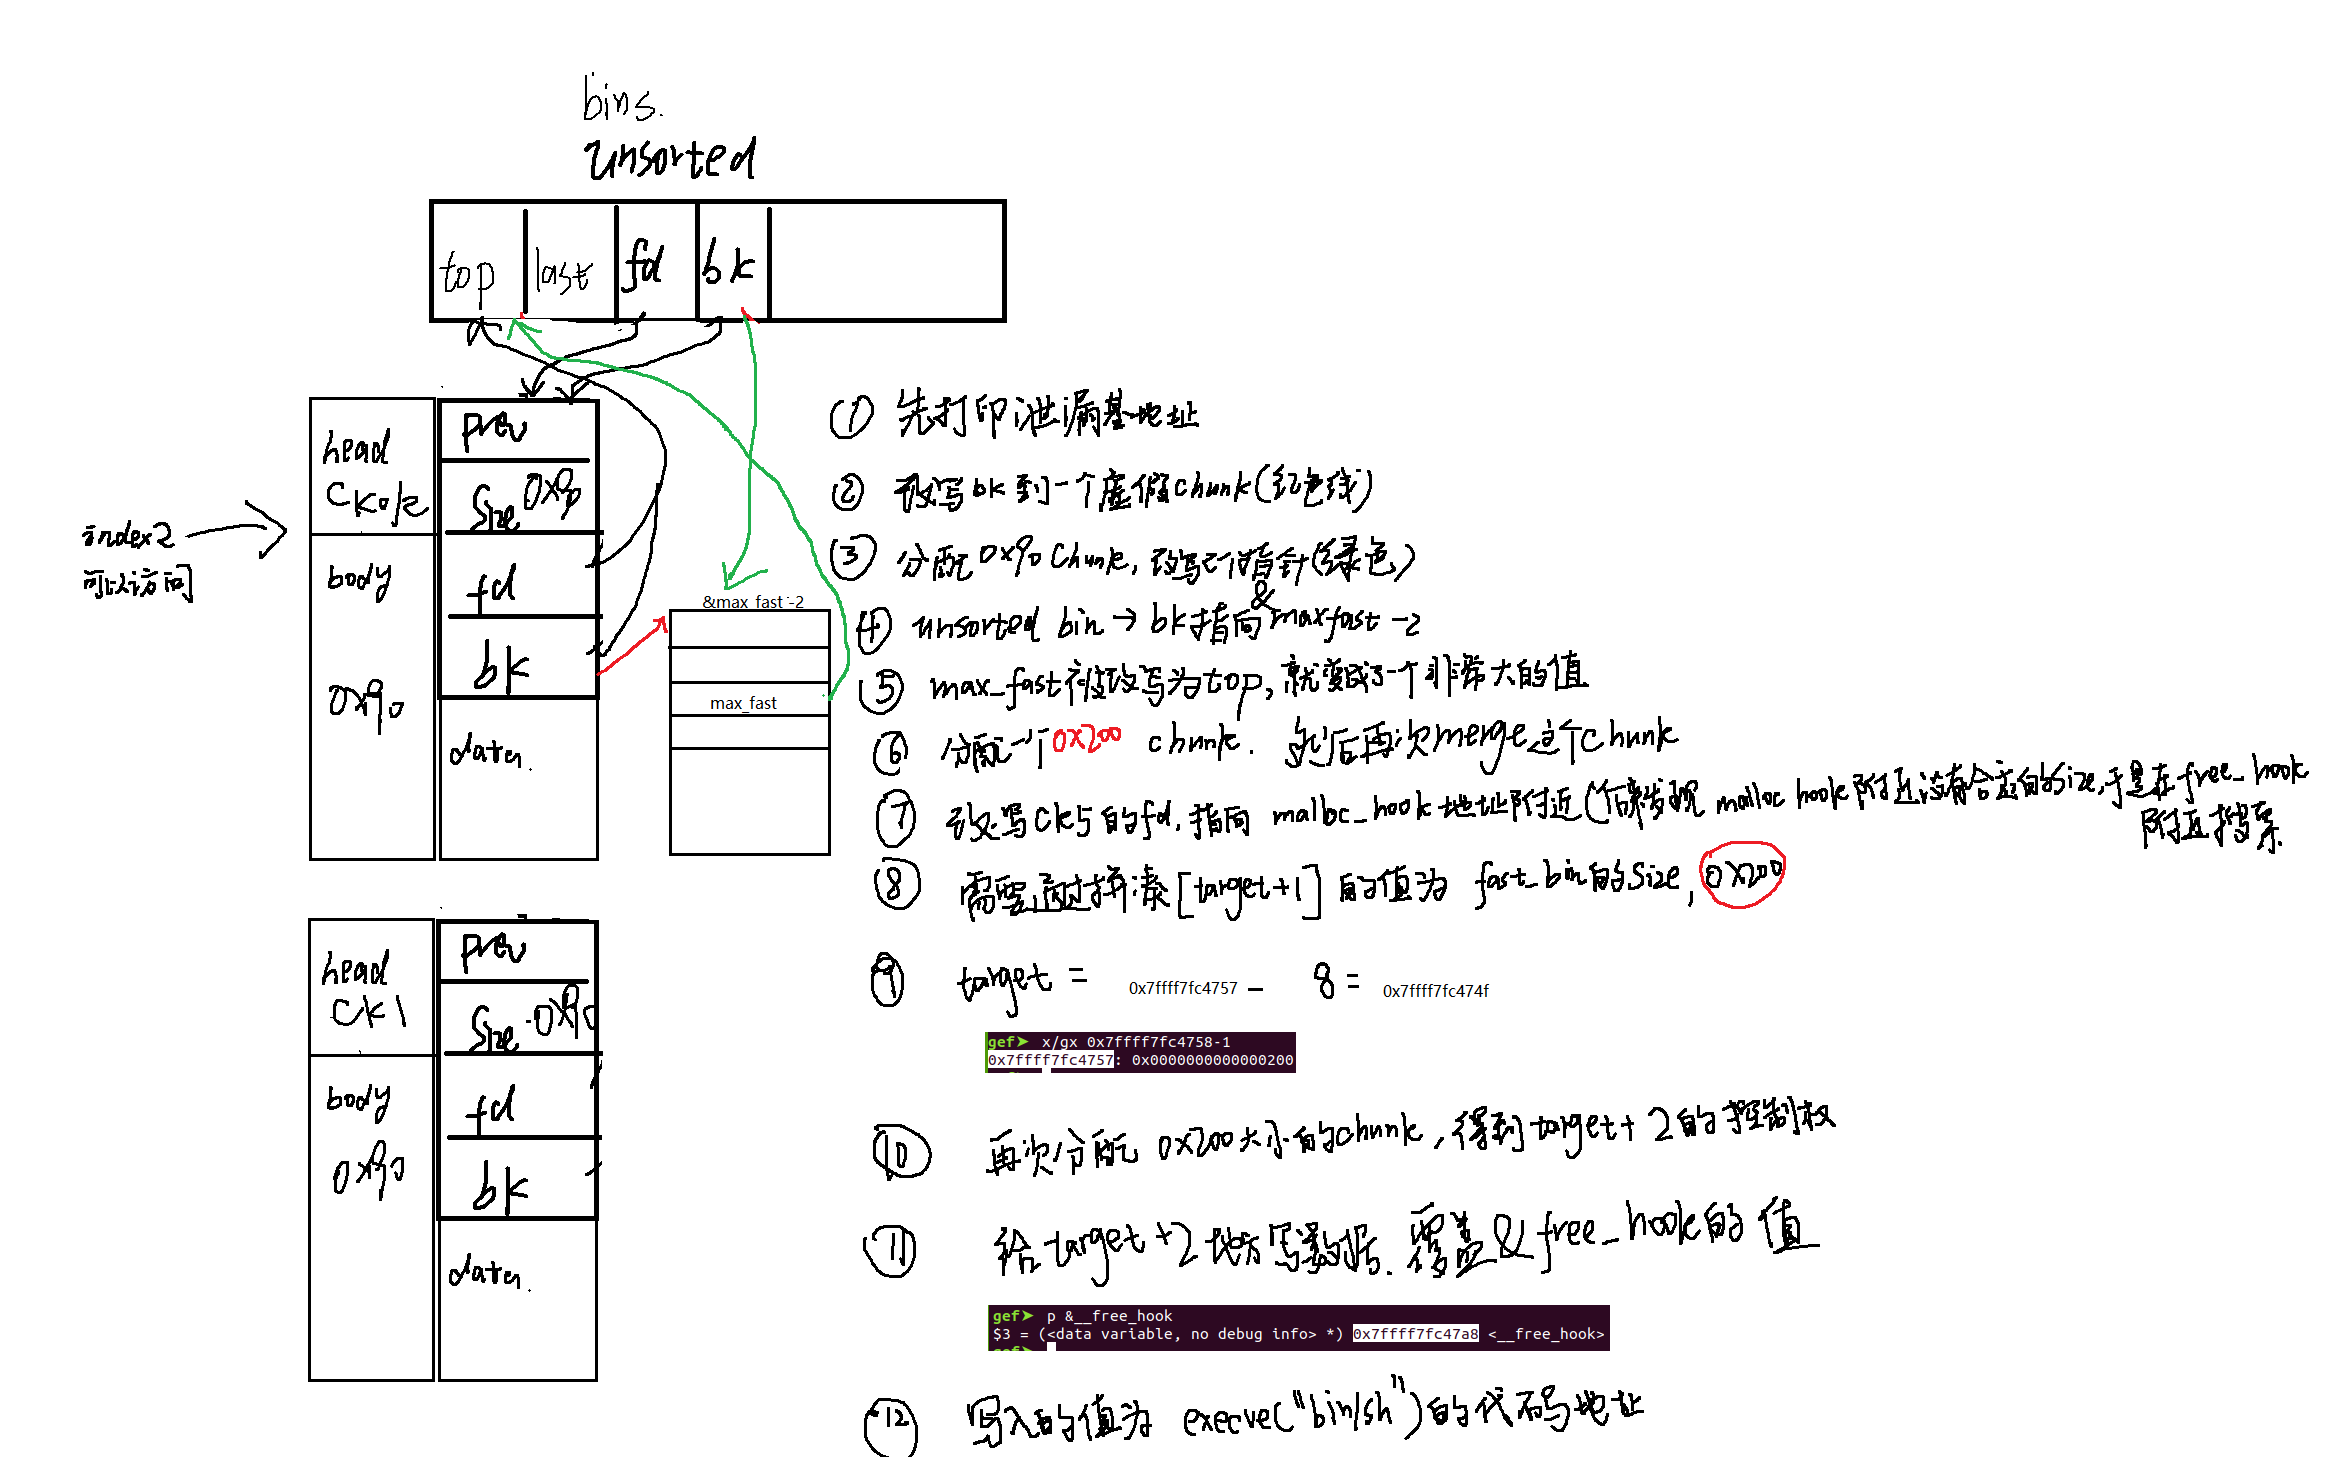 bins.
unsorted
top last fd bk
head
ck0/2
body
0x90
prev
size 0x90
fd
bk
data.
index2
可以访问
&max_fast -2
max_fast
head
ck1
body
0x90
prev
size 0x90
fd
bk
data.
① 先打印泄漏基地址
② 改写bk到一个虚假chunk(红色线)
③ 分配0x90 chunk, 改写2个指针(绿色)
④ unsorted bin → bk指向&maxfast -2
⑤ max_fast被改写为top, 就变成了一个非常大的值
⑥ 分配一个0x200 chunk. 然后再次merge这个chunk
⑦ 改写ck5的fd, 指向 malloc_hook地址附近(后来发现 malloc hook附近没有合适的size, 于是在free_hook
附近搜索
⑧ 需要通过拼凑[target+1]的值为 fast_bin的size, 0x200
⑨ target = 0x7ffff7fc4757 - 8 = 0x7ffff7fc474f
gef➤ x/gx 0x7ffff7fc4758-1
0x7ffff7fc4757: 0x0000000000000200
⑩ 再次分配 0x200大小的chunk, 得到target+2的控制权
⑪ 给target+2地方写数据. 覆盖&free_hook的值
gef➤ p &__free_hook
$3 = (<data variable, no debug info> *) 0x7ffff7fc47a8 <__free_hook>
⑫ 写入的值为 execve("bin/sh")的代码地址